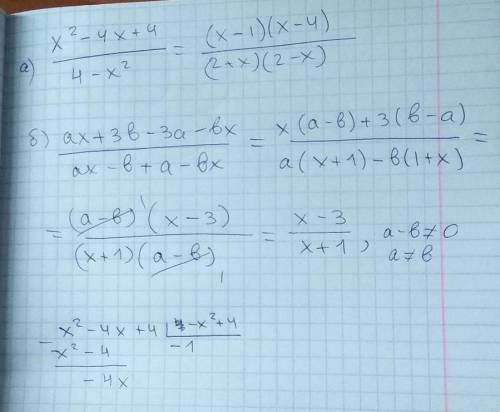 а) (x² - 4x + 4)/(4 - x²) = ((x-1)(x-4))/((2+x)(2-x))
б) (ax + 3в - 3a - вx)/(ax - в + a - вx) = (x(a-в) + 3(в-a))/(a(x+1) - в(1+x)) =
= ((a-в)¹(x-3))/((x+1)(a-в)₁) = (x-3)/(x+1), a-в≠0
a≠в
- x² - 4x + 4 | -x² + 4
x² - 4 | -1
-4x